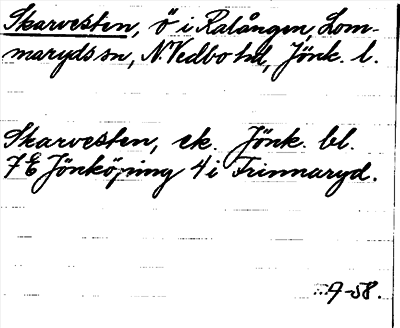 Skarvesten, ö i Ralången, Lom-
maryds sn, N. Vedbo hd, Jönk. l.
Skarvesten, ek. Jönk. bl.
7E Jönköping 4 i Frinnaryd.
9-58.